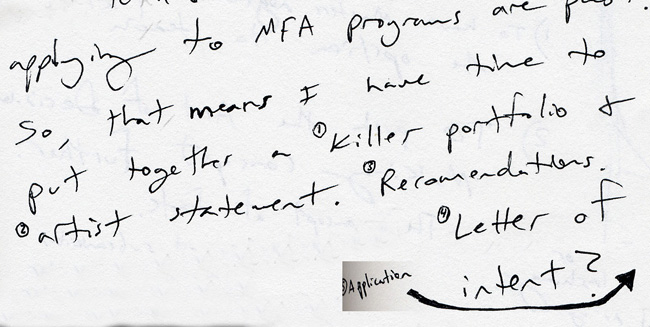 applying to MFA programs are
So, that means I have time to
put together a ①Killer portfolio &
②artist statement. ③Recomendations.
④Letter of
intent?
⑤Application